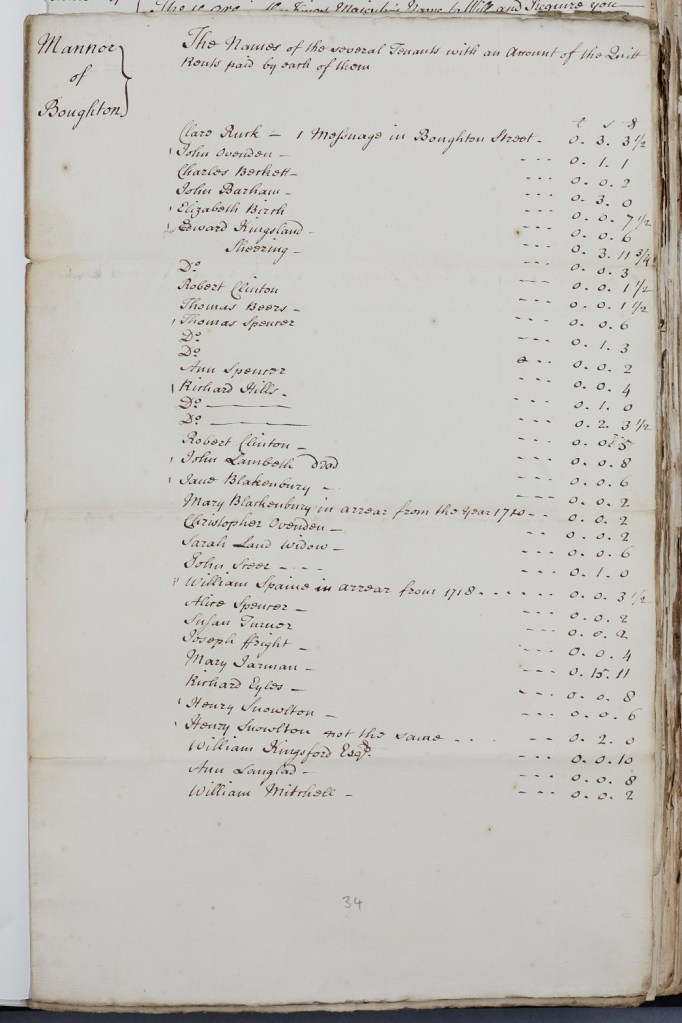 These are in the Kings Majesties Name to Will and Require you
Mannor
of
Boughton
The Names of the several Tenants with an Account of the Quitt
Rents paid by each of them
£ s d
Clare Ruck - 1 Messuage in Boughton Street - 0. 3. 3 1/2
John Ovenden - --- 0. 1. 1
Charles Beckett - --- 0. 0. 2
John Barham - --- 0. 3. 0
Elizabeth Birch --- 0. 0. 7 1/2
Edward Kingsland - --- 0. 0. 6
Sheering - --- 0. 3. 11 3/4
Do. --- 0. 0. 3
Robert Clinton --- 0. 0. 1 1/2
Thomas Beers - --- 0. 0. 1 1/2
Thomas Spencer --- 0. 0. 6
Do. --- 0. 1. 3
Do. --- 0. 0. 2
Ann Spencer --- 0. 0. 4
Richard Hills - --- 0. 1. 0
Do. --- 0. 2. 3 1/2
Do. --- 0. 0. 5
Robert Clinton - --- 0. 0. 8
John Lambeth dead --- 0. 0. 6
Jane Blakenbury - --- 0. 0. 2
Mary Blackenbury in arrear from the Year 1720 -- 0. 0. 2
Christopher Ovenden - -- 0. 0. 2
Sarah Land Widow - --- 0. 0. 6
John Steer - - - - --- 0. 1. 0
William Spaine in arrear from 1718 - - - - - - 0. 0. 3 1/2
Alice Spencer - --- 0. 0. 2
Susan Turner --- 0. 0. 2
Joseph ffright - --- 0. 0. 4
Mary Jarman - --- 0. 15. 11
Richard Eyles - --- 0. 0. 8
Henry Snowlton - --- 0. 0. 6
Henry Snowlton not the same - - - --- 0. 2. 0
William Kingsford Esqr. --- 0. 0. 10
Ann Langlad - --- 0. 0. 8
William Mitchell - --- 0. 0. 2
34